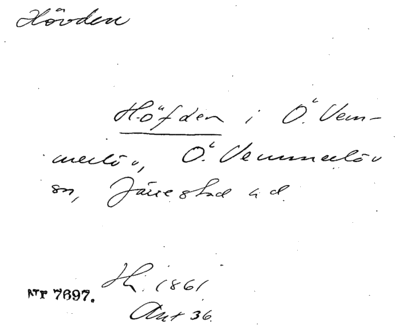 Hövden
Höfden i Ö. Vem-
merlöv, Ö. Vemmerlöv
sn, Järrestad h d.
Hi. 1861
Nr 7697.
Ant 36.